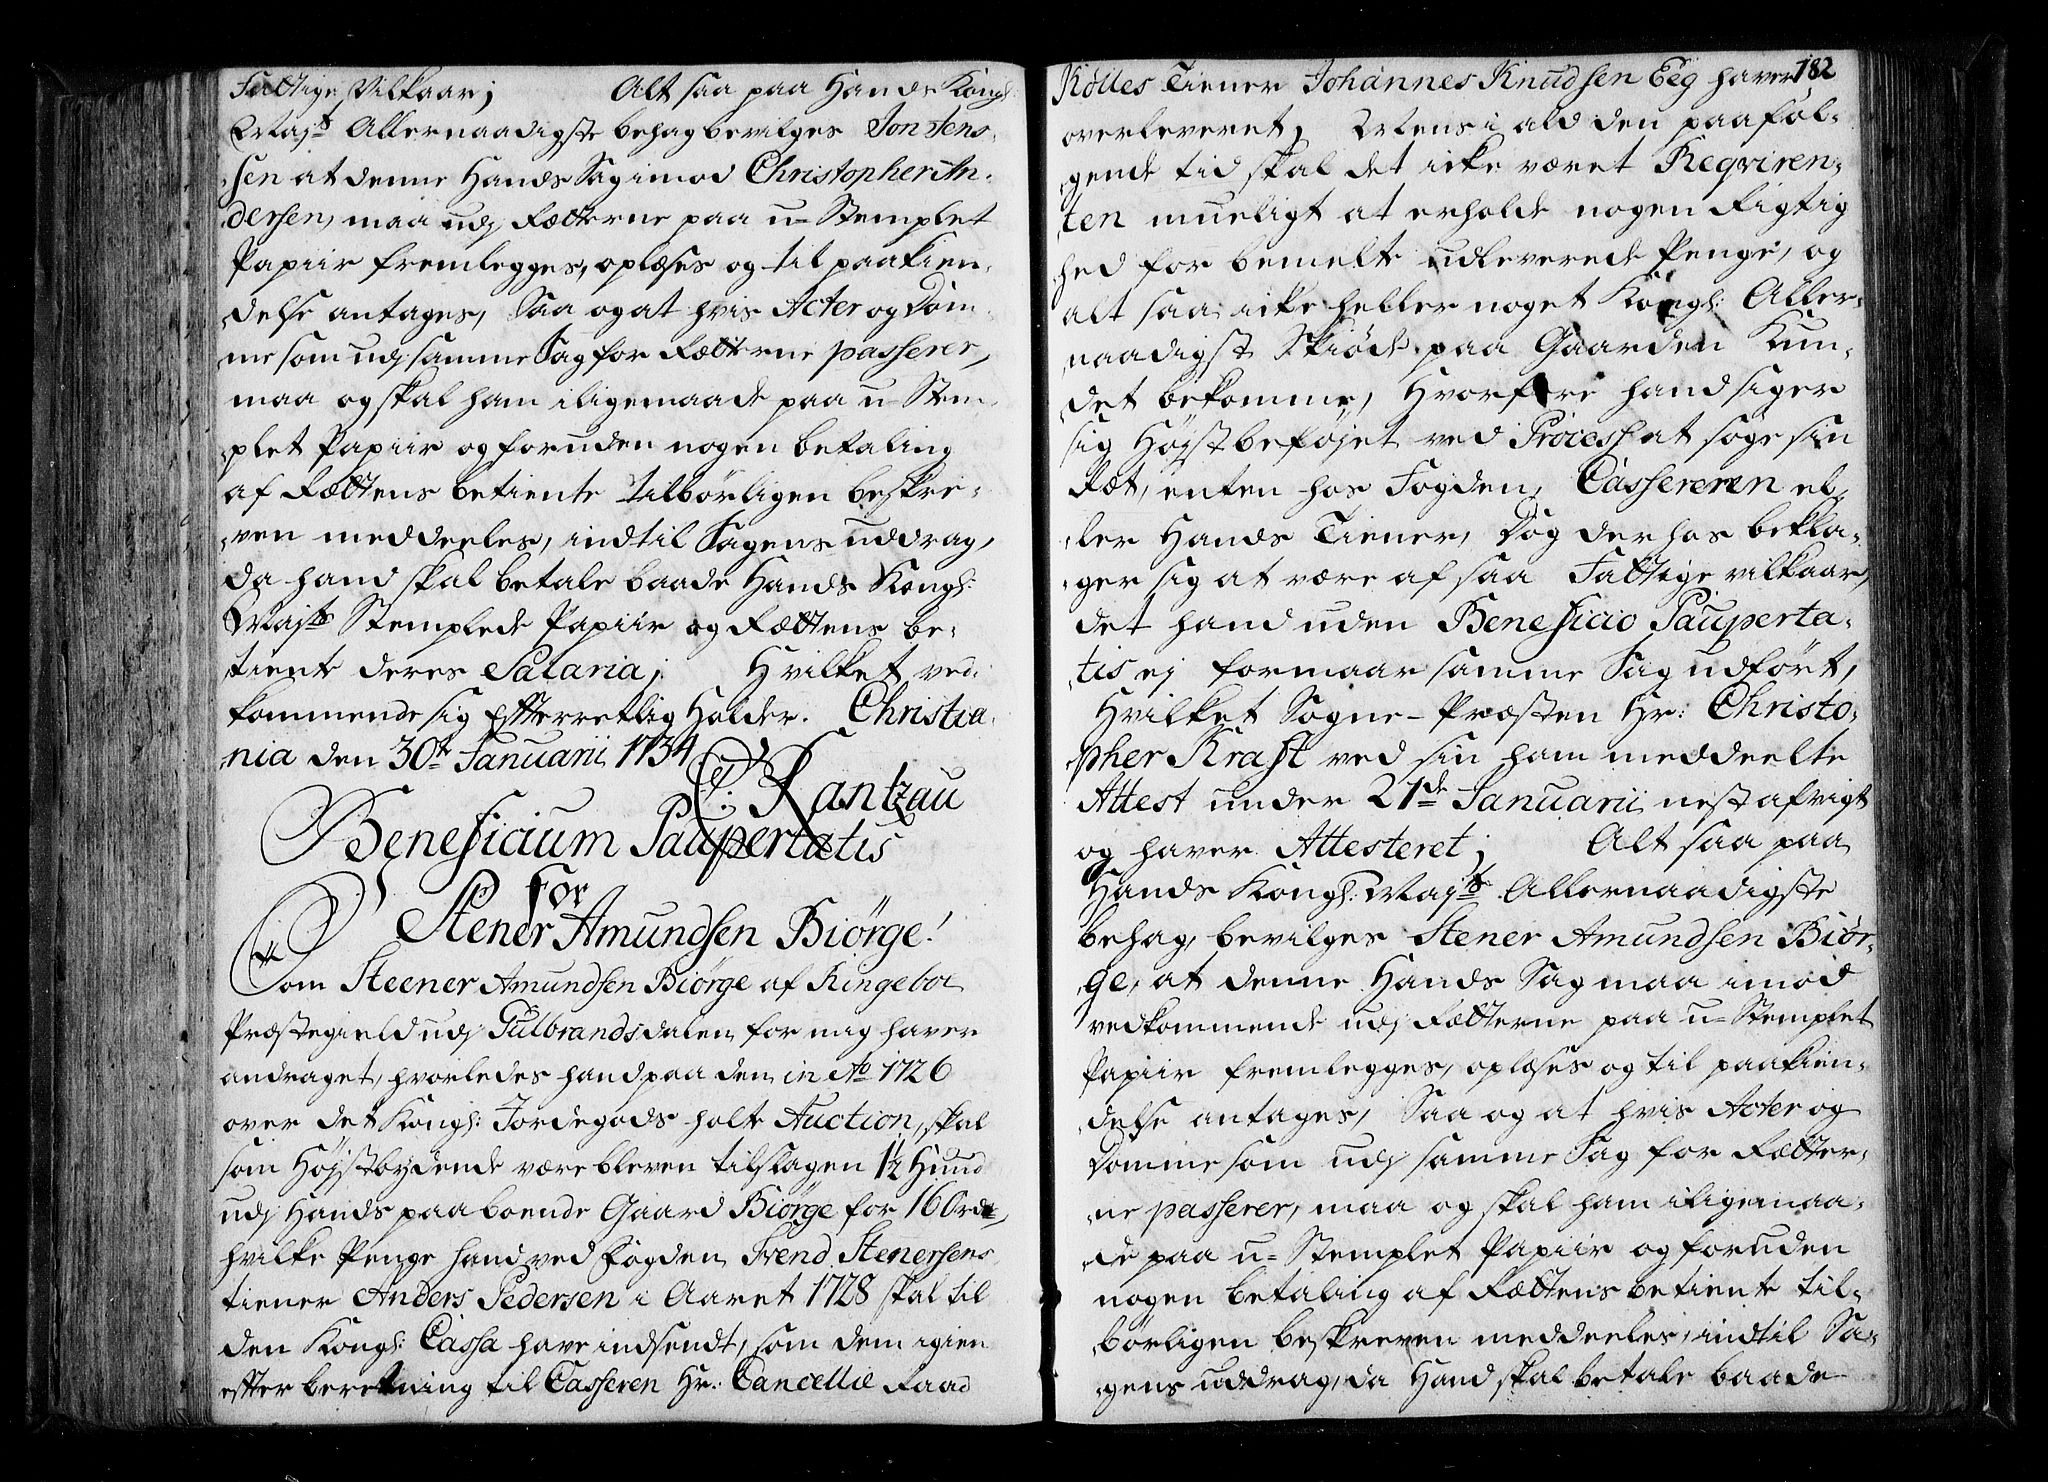 Fattige Vilkaar; Alt saa paa Hands Kongl:
Mayts Allernaadigste behag bevilges Jon Jens-
sen at denne Hands Sag imod Christopher An-
dersen, maa udj Rætterne paa u-Stemplet
Papiir fremlegges, oplæses og til paakien-
delse antages, Saa og at hvis Acter og Dom-
me som udj samme Sag for Rætterne passerer,
maa og skal ham iligemaade paa u-Stem-
plet Papiir og foruden nogen betaling
af Rættens betiente tilbörligen beskre-
ven meddeeles, indtil Sagens uddrag,
da hand skal betale baade Hands Kongl:
Mayts Stemplede Papiir og Rættens be-
tiente deres Salaria; Hvilket ved-
kommende sig Efterretlig Holder. Christia-
nia den 30te Januarii 1734
C: Rantzau
Beneficium Paupertatis
For
Stener Amundsen Biörge!
Som Steener Amundsen Biörge af Ringeboe
Præstegield udj Gulbrandsdalen for mig haver
andraget, hvorledes hand paa den in Ao 1726
over det Kongl: Jordegods holte Auction, skal
som Höystbydende være bleven tilslagen 1½ Hund
udj Hands paaboende Gaard Biörge for 160 rdr,
hvilke Penge hand ved Fogden Trend Stenersens
tiener Anders Pedersen i Aaret 1728 skal til
den Kongl: Cassa have indsendt, som dem igien
efter beretning til Casseren Hr: Cancellie Raad
182
Röties Tiener Johannes Knudsen Eeg haver
overleveret, Mens i ald den paaföl-
gende tid skal det icke været Reqviren-
ten mueligt at erholde nogen Rigtig-
hed for bemelte udleverede Penge, og
alt saa icke heller noget Kongl: Aller-
naadigst Skiöde paa Gaarden Kun-
det bekomme, Hvorfore hand siger
sig Höystbeföjet ved Process at söge sin
Ræt, enten hos Fogden, Cassereren el-
ler Hands Tiener, Dog derhos bekla-
ger sig at være af saa Fattige vilkaar,
det hand uden Beneficio Pauperta-
tis ej formaar samme Sag udfört,
Hvilket Sogne-Præsten Hr: Christo-
pher Kraft ved sin ham meddeelte
Attest under 21de Januarii nest afvigt
og haver Attesteret; Alt saa paa
Hands Kongl: Mayts Allernaadigste
behag, bevilges Stener Amundsen Biör-
ge, at denne Hands Sag maa imod
vedkommende udj Rætterne paa u-Stemplet
Papiir fremlegges, oplæses og til paakien-
delse antages, Saa og at hvis Acter og
Domme som udj samme Sag for Rætter-
ne passerer, maa og skal ham iligemaa-
de paa u-Stemplet Papiir og foruden
nogen betaling af Rættens betiente til-
börligen beskreven meddeeles, indtil Sa-
gens uddrag, da Hand skal betale baade